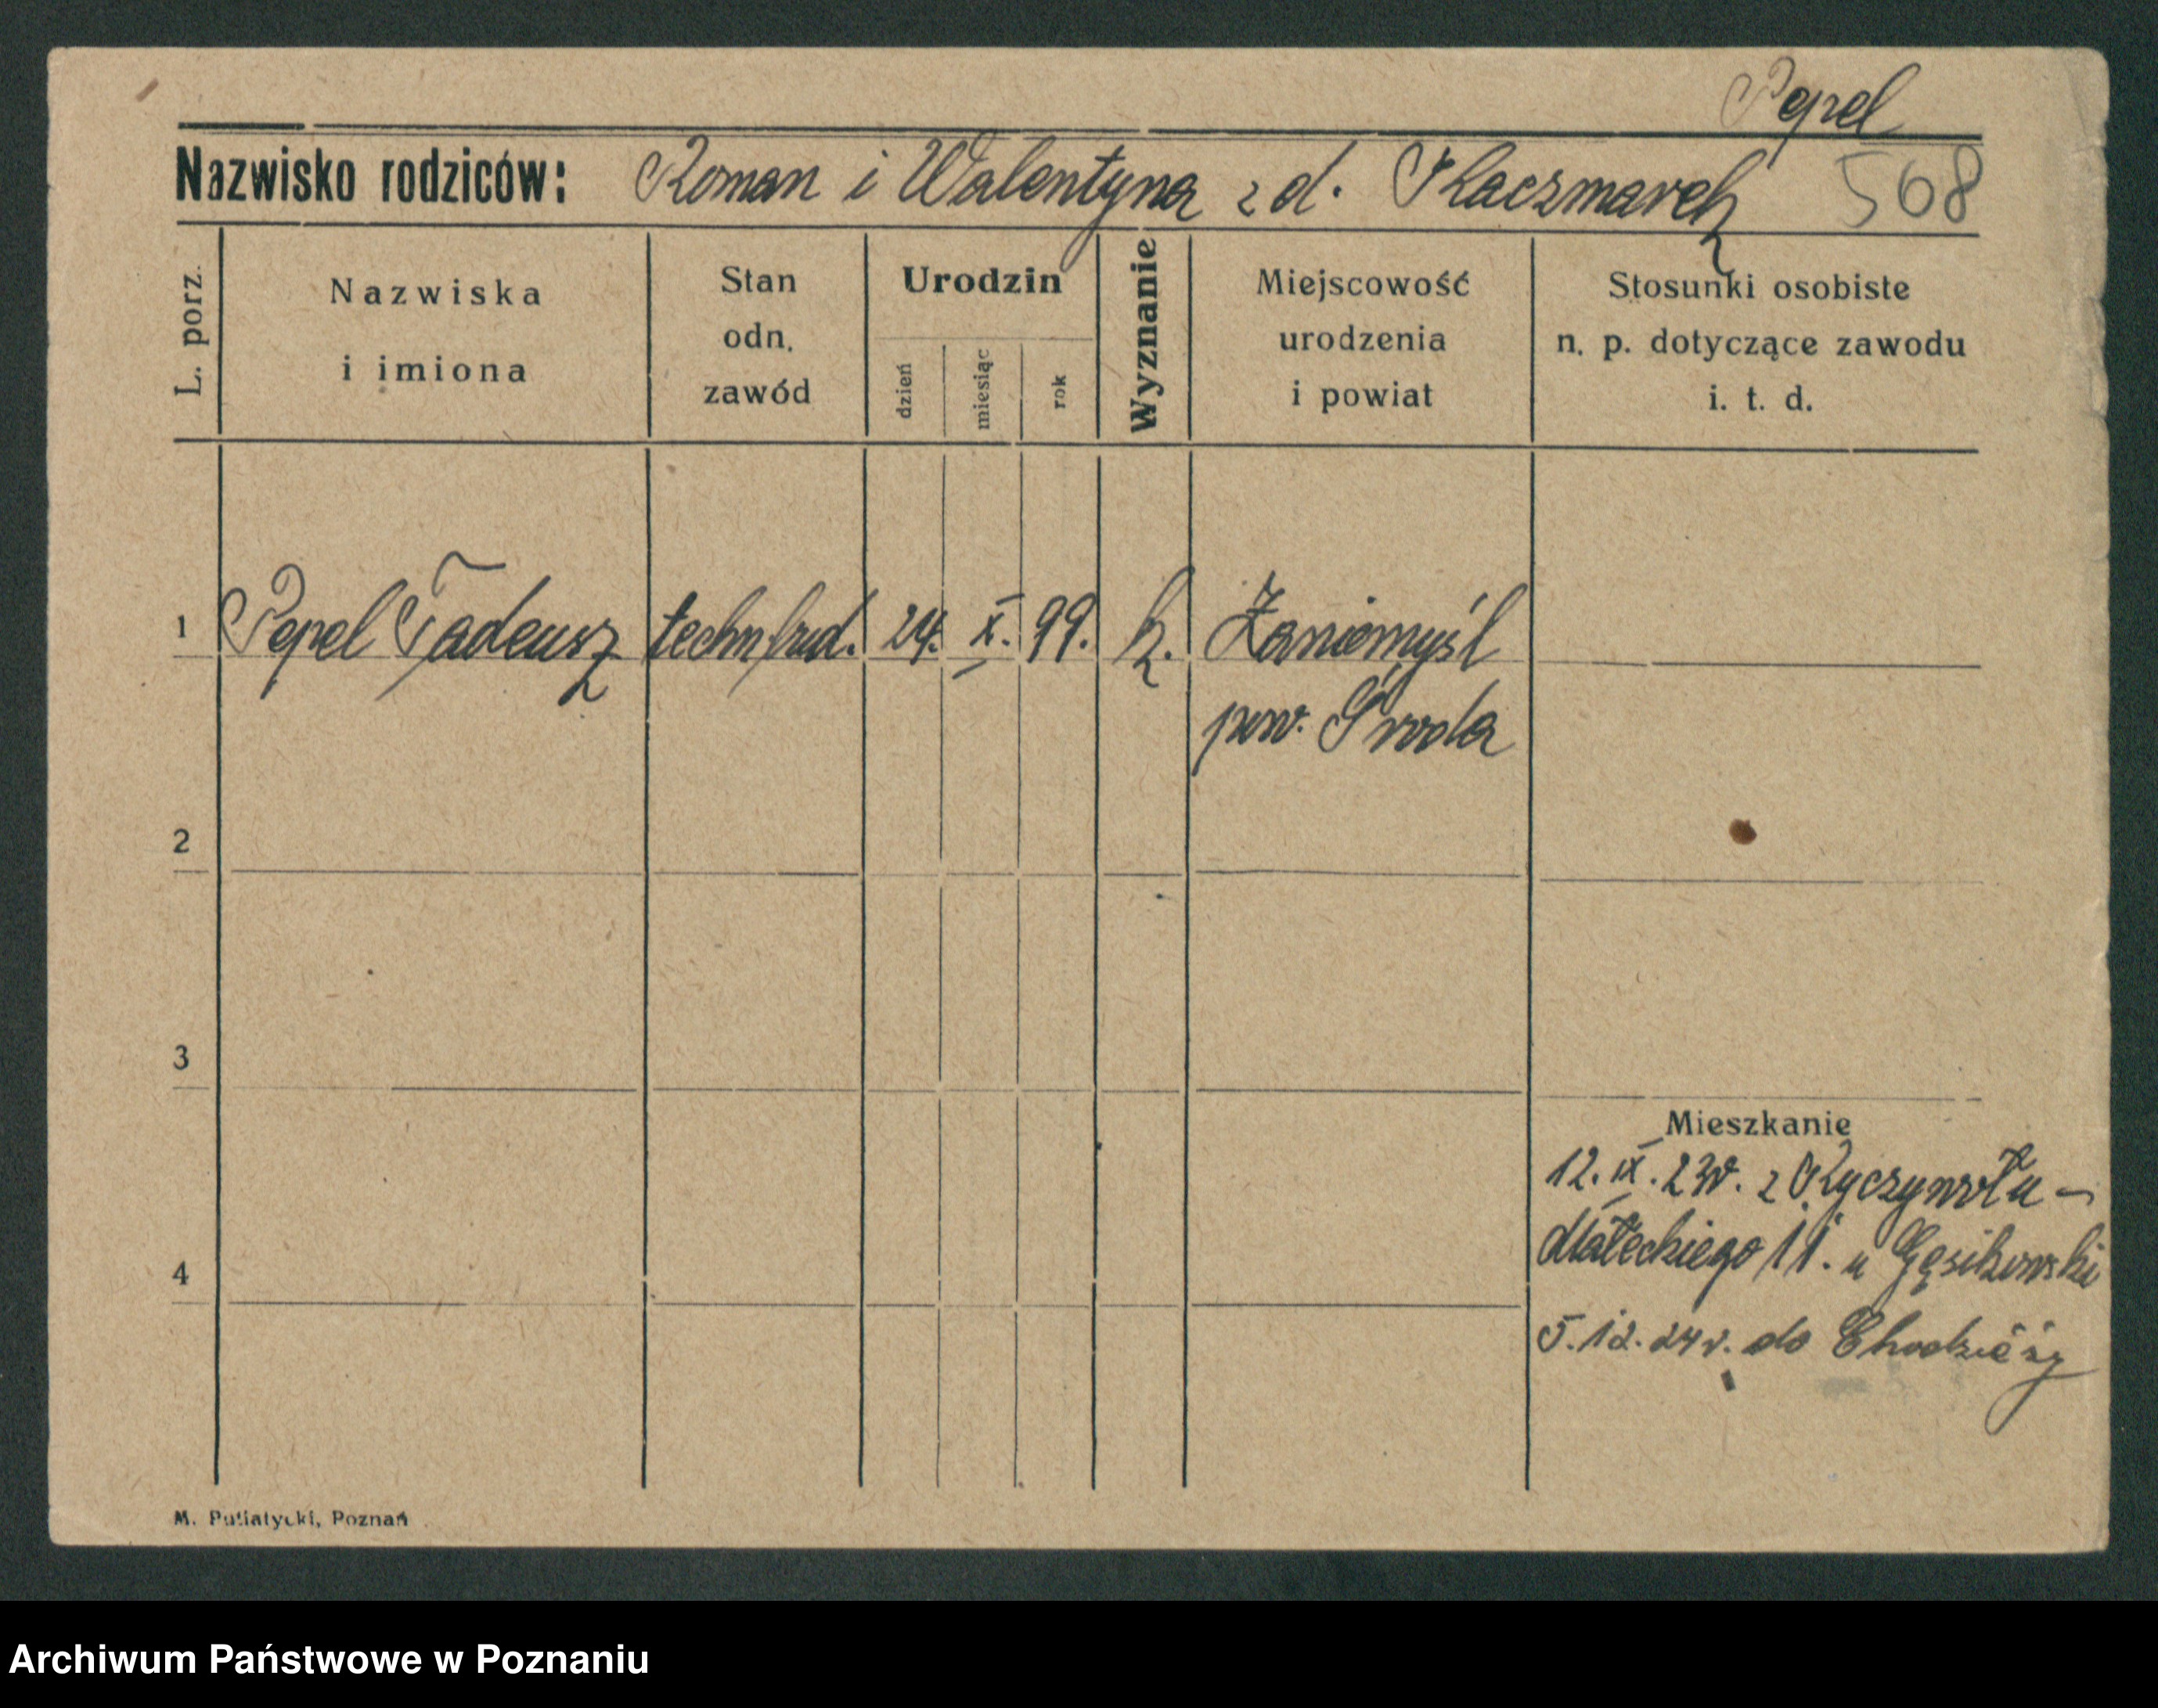 Pepel
Nazwisko rodziców: Roman i Walentyna z d. Kaczmarek 568
L. porz. Nazwiska i imiona Stan odn. zawód Urodzin dzień miesiąc rok Wyznanie Miejscowość urodzenia i powiat Stosunki osobiste n. p. dotyczące zawodu i. t. d.
1 Pepel Tadeusz techn. 24. X. 99. k. Zaniemyśl
pow. Środa
2
3
Mieszkanie
12. IX. 23r. z Ryczywołu -
Małeckiego 11. u Gąsikowski
4
5.12.24r. do Chodzieży
M. Putiatycki, Poznań
Archiwum Państwowe w Poznaniu